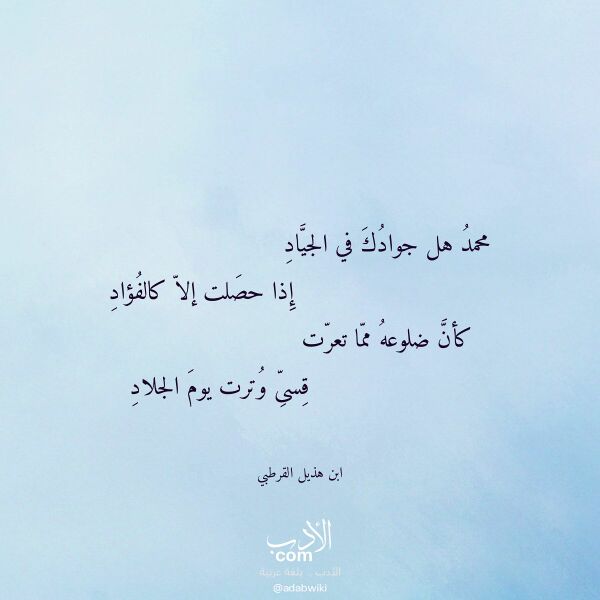 محمدُ هل جوادُكَ في الجيَّادِ
إِذا حصَلت إلاّ كالفُؤادِ
كأنَّ ضلوعهُ ممّا تعرّت
قِسيِّ وُترت يومَ الجلادِ
ابن هذيل القرطبي
الأدب
com
الأدب .. بلغة عربية
@adabwiki